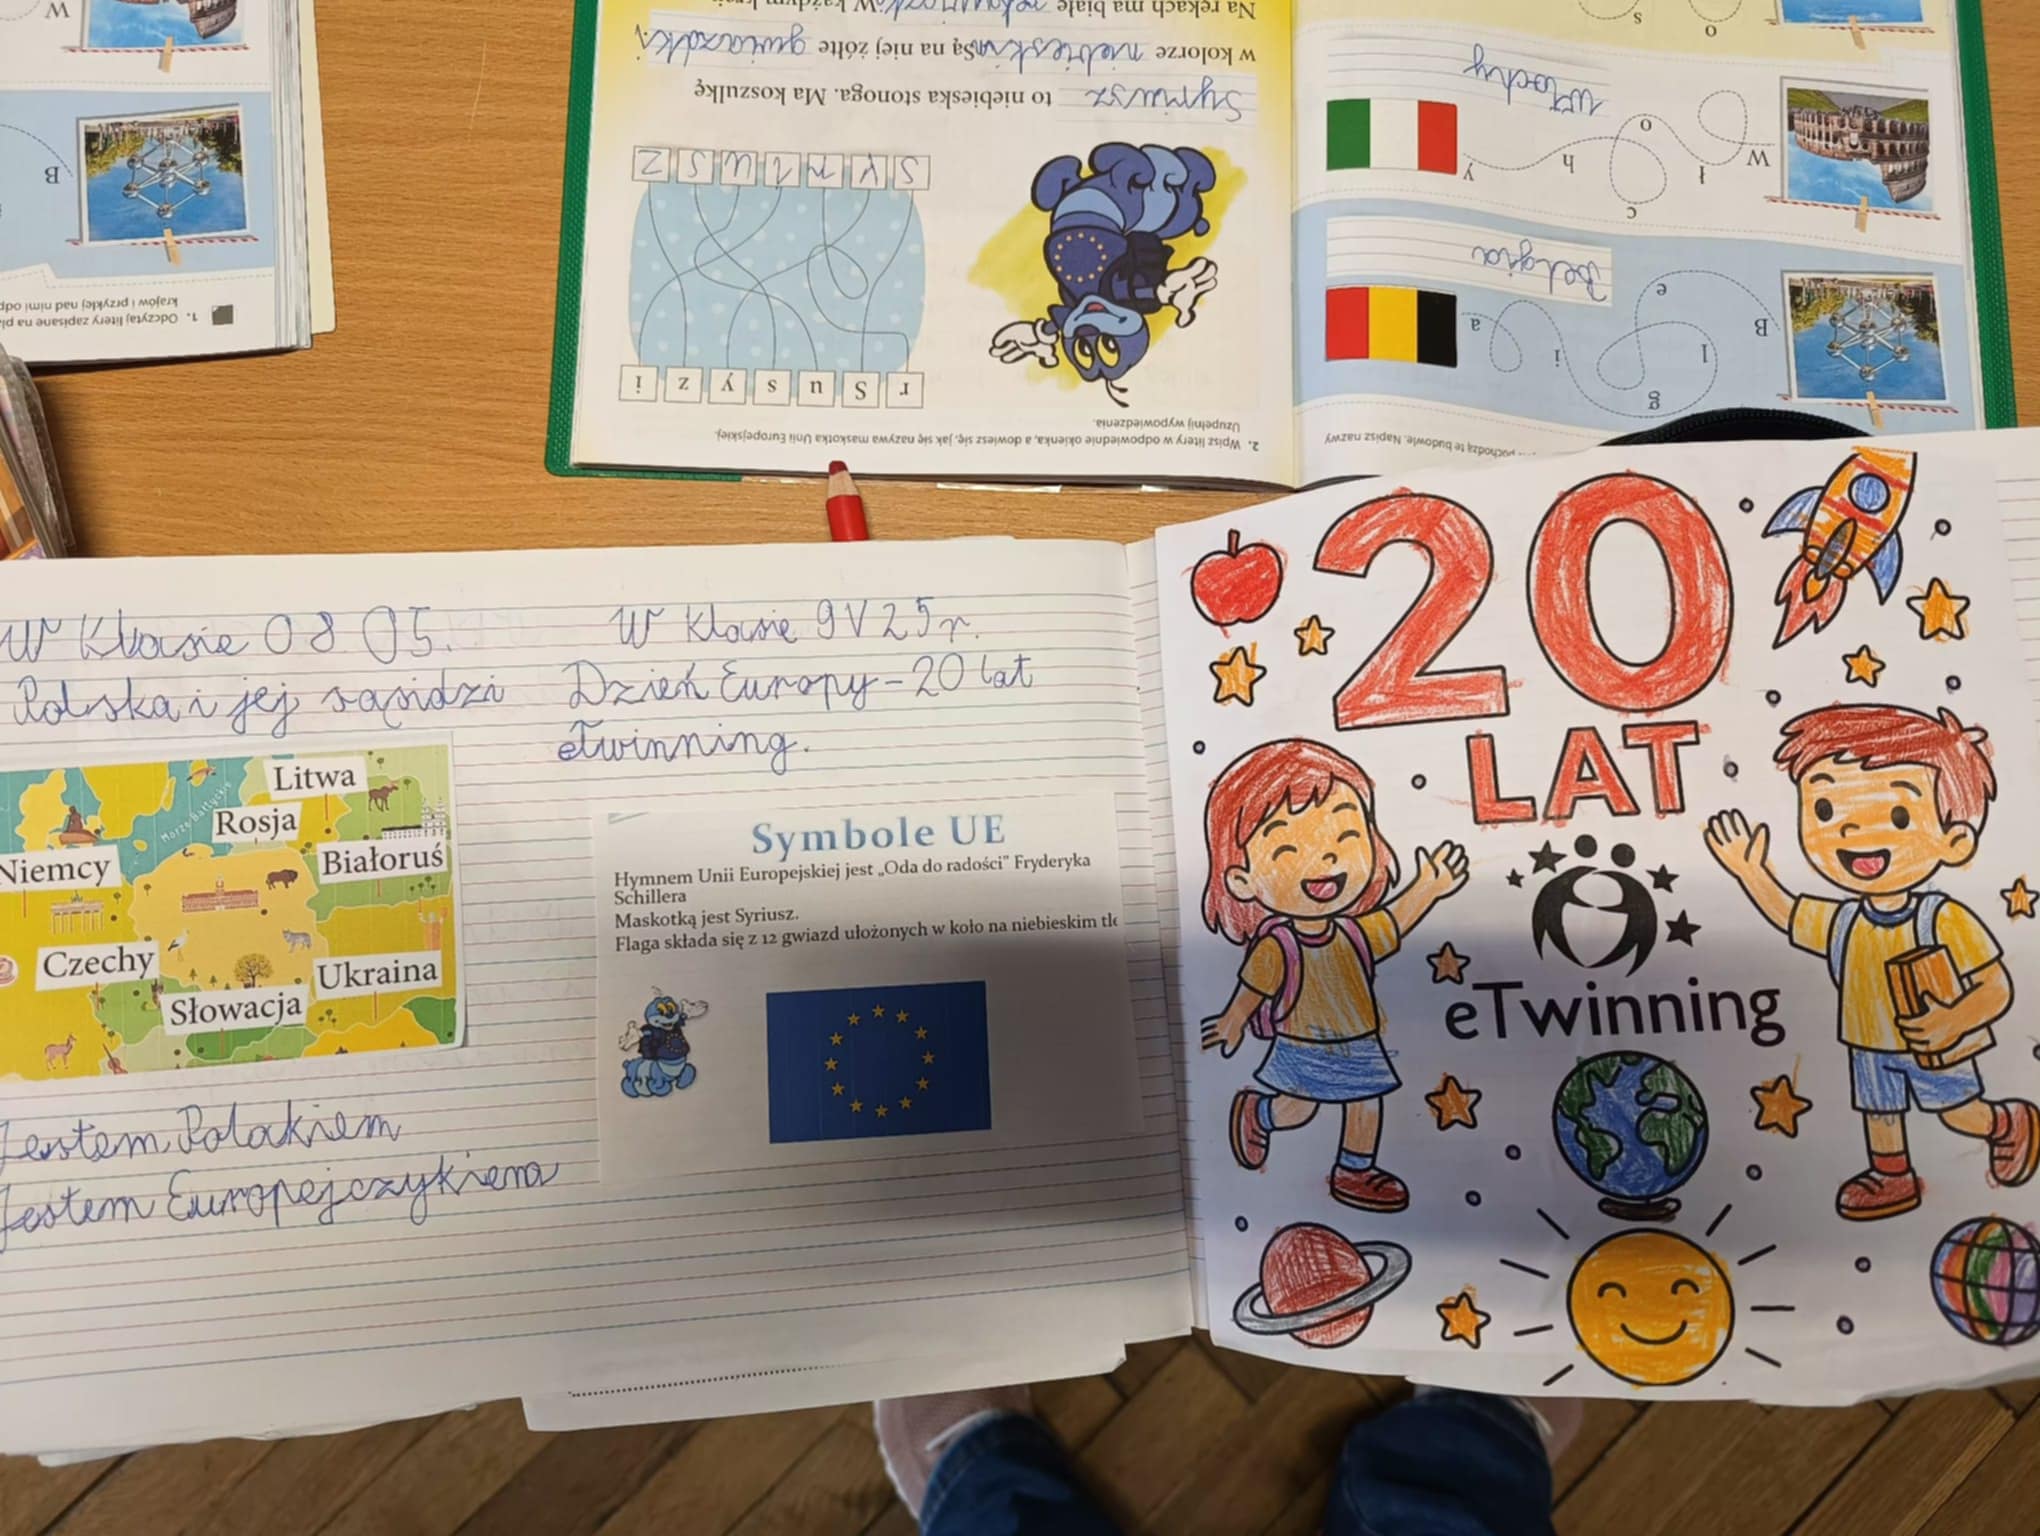 W klasie 08 05.
Polska i jej sąsiedzi
Litwa
Rosja
Morze Bałtyckie
Niemcy
Białoruś
Czechy
Ukraina
Słowacja
Jestem Polakiem
Jestem Europejczykiem
W klasie 9 V 25 r.
Dzień Europy - 20 lat
eTwinning.
Symbole UE
Hymnem Unii Europejskiej jest „Oda do radości" Fryderyka
Schillera
Maskotką jest Syriusz.
Flaga składa się z 12 gwiazd ułożonych w koło na niebieskim tle
20
LAT
eTwinning
2. Wpisz litery w odpowiednie okienka, a dowiesz się, jak się nazywa maskotka Unii Europejskiej.
Uzupełnij wypowiedzenia.
r S u s y z i
S y r i u s z
Syriusz to niebieska stonoga. Ma koszulkę
w kolorze niebieskim. Są na niej żółte gwiazdki.
Na rękach ma białe
W każdym
pochodzą te budowle. Napisz nazwy
B e l g i a
Belgia
W ł o c h y
Włochy
o s
1. Odczytaj litery zapisane na
krajów i przyklej nad nimi
B
W